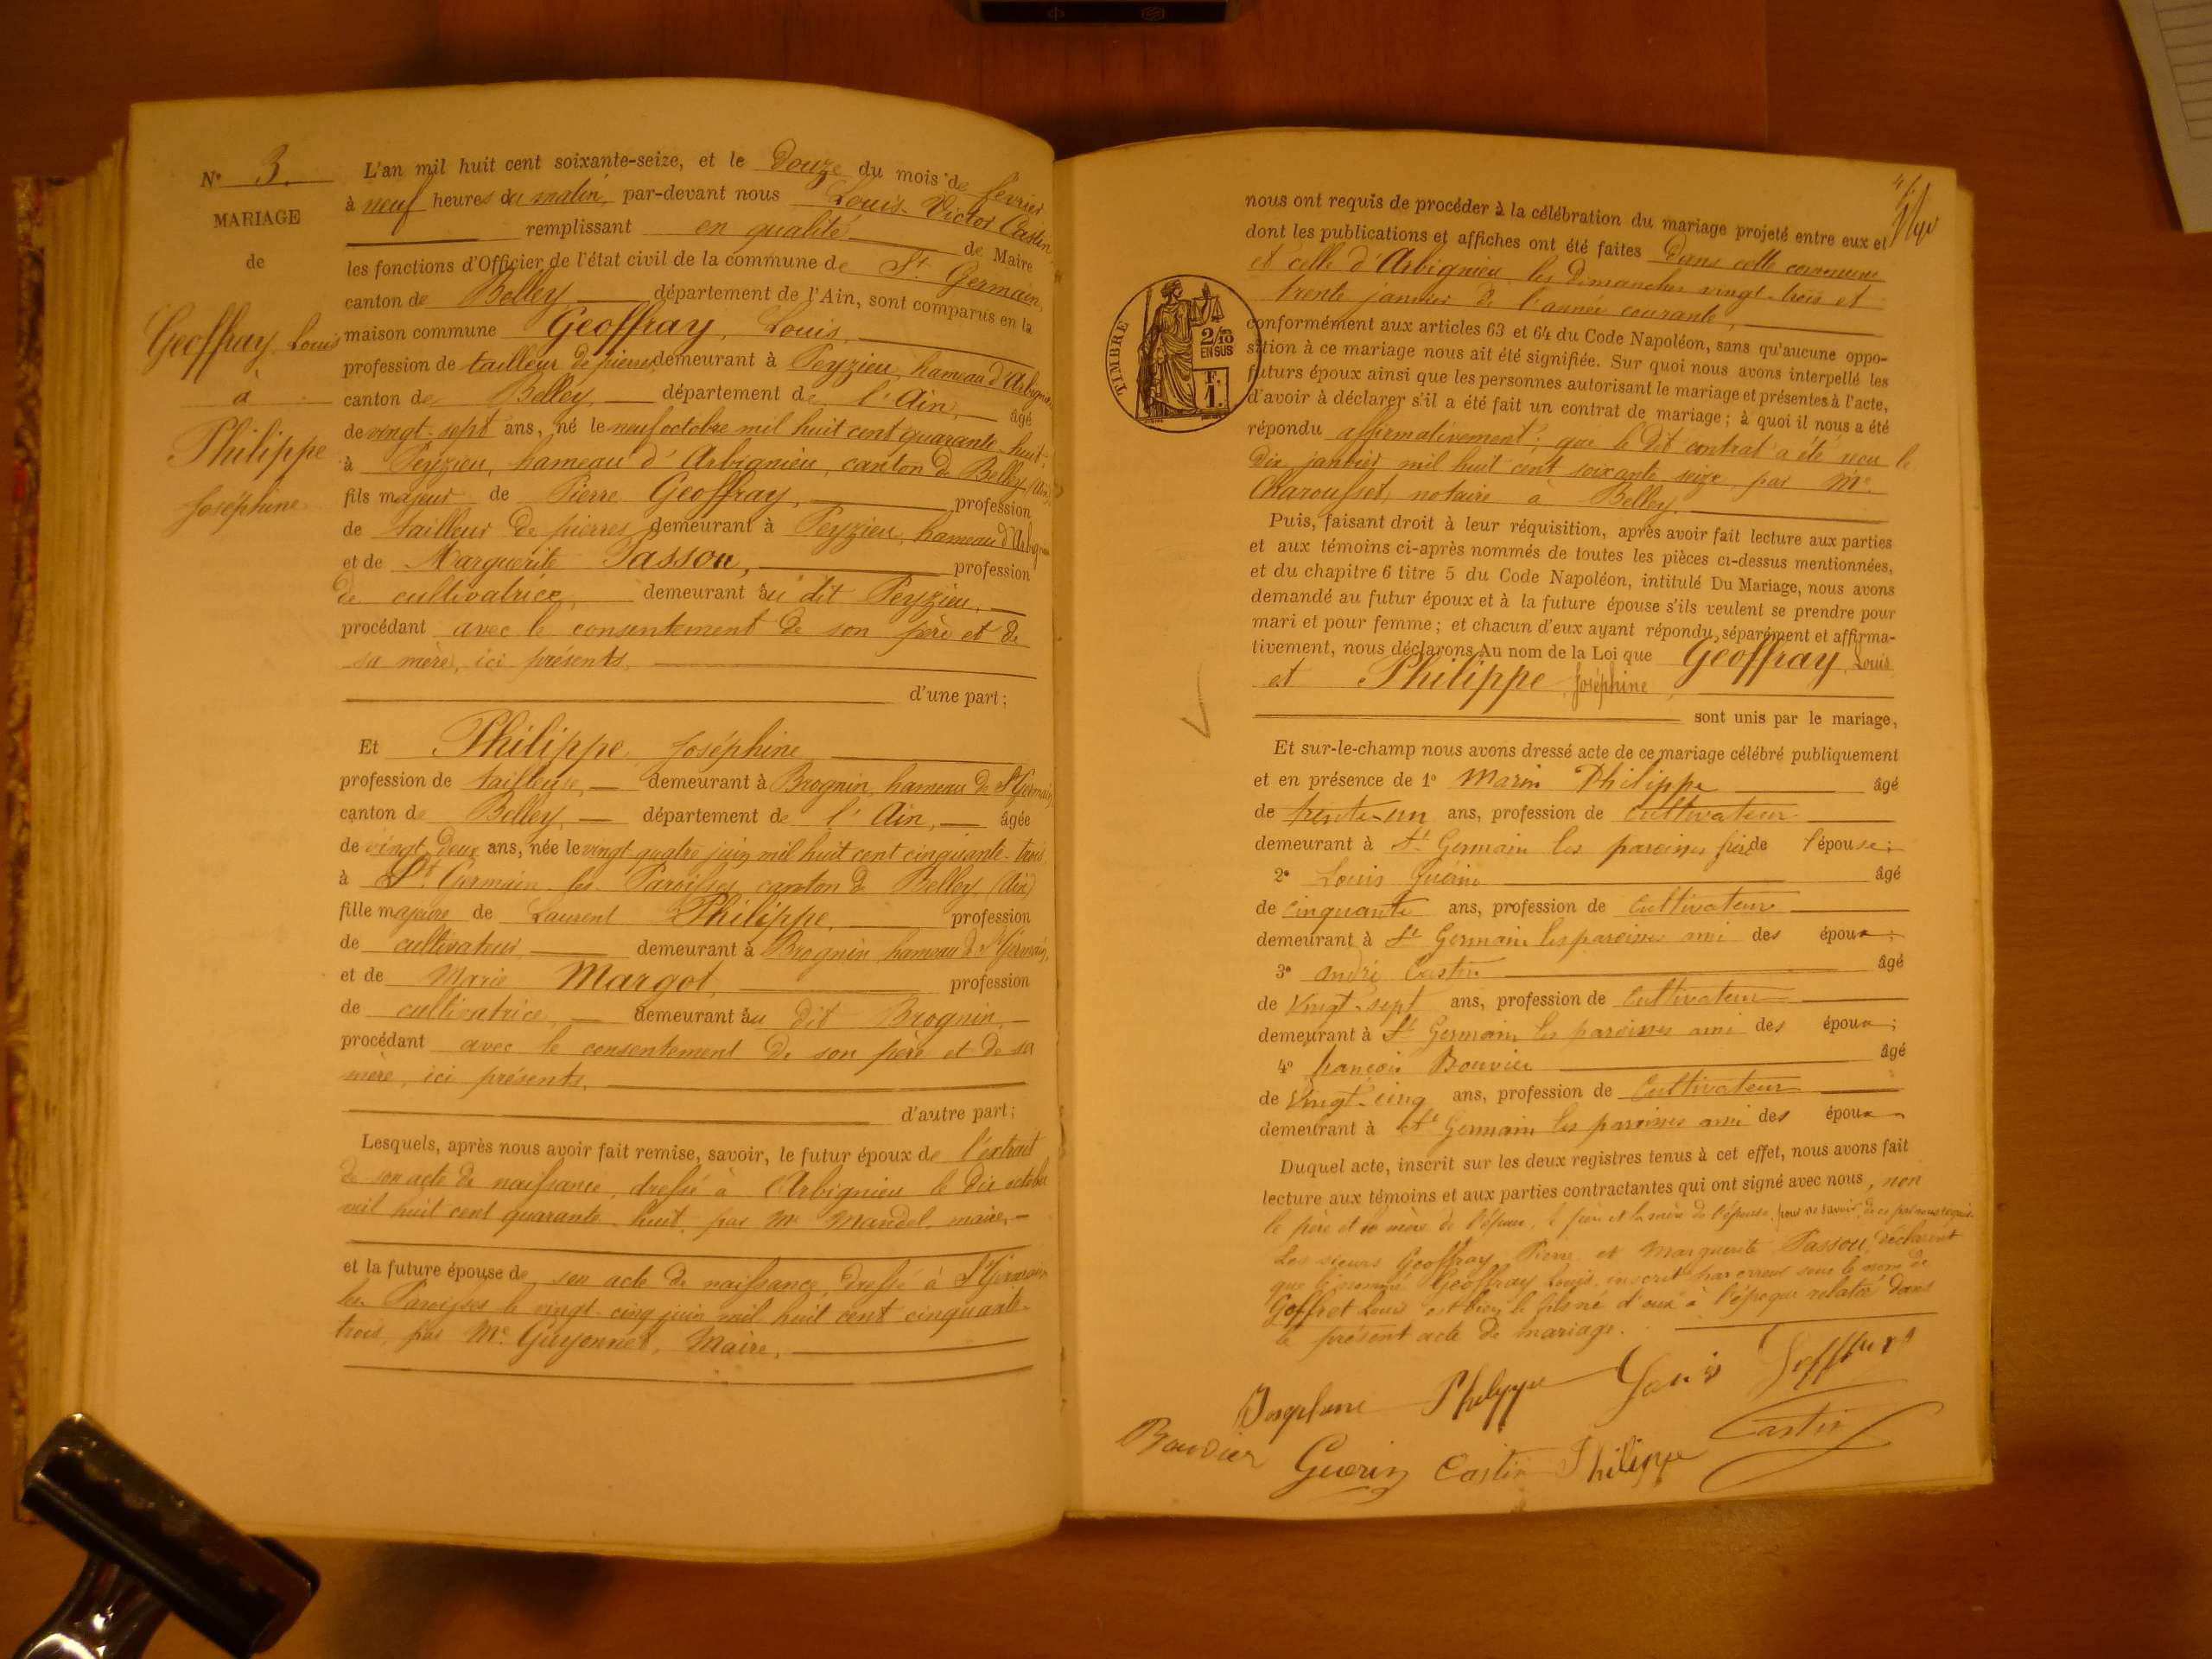 N° 3.
MARIAGE
de
Geoffray Louis
à
Philippe
Joséphine
L'an mil huit cent soixante-seize, et le douze du mois de février
à neuf heures du matin, par-devant nous Louis-Victor Castin
remplissant en qualité de Maire
les fonctions d'Officier de l'état civil de la commune de St. Germain,
canton de Belley, département de l'Ain, sont comparus en la
maison commune Geoffray, Louis,
profession de tailleur de pierres, demeurant à Peyzieu, hameau d'Arbignieu
canton de Belley, département de l'Ain, âgé
de vingt-sept ans, né le neuf octobre mil huit cent quarante-huit,
à Peyzieu, hameau d'Arbignieu, canton de Belley (Ain)
fils majeur de Pierre Geoffray, profession
de tailleur de pierres, demeurant à Peyzieu, hameau d'Arbignieu
et de Marguerite Passou, profession
de cultivatrice, demeurant au dit Peyzieu,
procédant avec le consentement de son père et de
sa mère, ici présents,
d'une part;
Et Philippe, Joséphine
profession de tailleuse, demeurant à Brognin, hameau de St Germain,
canton de Belley, département de l'Ain, âgée
de vingt deux ans, née le vingt quatre juin mil huit cent cinquante-trois
à St. Germain-les-Paroisses, canton de Belley (Ain)
fille majeure de Laurent Philippe, profession
de cultivateur, demeurant à Brognin hameau de St Germain,
et de Marie Margot, profession
de cultivatrice, demeurant au dit Brognin,
procédant avec le consentement de son père et de sa
mère, ici présents,
d'autre part;
Lesquels, après nous avoir fait remise, savoir, le futur époux de l'extrait
de son acte de naissance, dressé à Arbignieu le dix octobre
mil huit cent quarante-huit, par Mr Mandel, maire,
et la future épouse de son acte de naissance, dressé à St Germain
les Paroisses le vingt-cinq juin mil huit cent cinquante-
trois, par Mr. Guyonnet, Maire,
nous ont requis de procéder à la célébration du mariage projeté entre eux et
dont les publications et affiches ont été faites dans cette commune
et celle d'Arbignieu les dimanches vingt-trois et
trente janvier de l'année courante,
conformément aux articles 63 et 64 du Code Napoléon, sans qu'aucune oppo-
sition à ce mariage nous ait été signifiée. Sur quoi nous avons interpellé les
futurs époux ainsi que les personnes autorisant le mariage et présentes à l'acte,
d'avoir à déclarer s'il a été fait un contrat de mariage; à quoi il nous a été
répondu affirmativement; que le dit contrat a été reçu le
dix janvier mil huit cent soixante seize par Me.
Charousset, notaire à Belley,
TIMBRE
2/10
EN SUS
F.
1.
Puis, faisant droit à leur réquisition, après avoir fait lecture aux parties
et aux témoins ci-après nommés de toutes les pièces ci-dessus mentionnées,
et du chapitre 6 titre 5 du Code Napoléon, intitulé Du Mariage, nous avons
demandé au futur époux et à la future épouse s'ils veulent se prendre pour
mari et pour femme; et chacun d'eux ayant répondu, séparément et affirma-
tivement, nous déclarons Au nom de la Loi que Geoffray Louis
et Philippe Joséphine,
sont unis par le mariage,
Et sur-le-champ nous avons dressé acte de ce mariage célébré publiquement
et en présence de 1° Marin Philippe âgé
de trente-un ans, profession de cultivateur
demeurant à St Germain les paroisses frère de l'épouse;
2° Louis Guérin âgé
de cinquante ans, profession de cultivateur
demeurant à St Germain les paroisses ami des époux;
3° andré Castin âgé
de vingt-sept ans, profession de cultivateur
demeurant à St Germain les paroisses ami des époux;
4° françois Bouvier âgé
de vingt-cinq ans, profession de cultivateur
demeurant à St Germain les paroisses ami des époux
Duquel acte, inscrit sur les deux registres tenus à cet effet, nous avons fait
lecture aux témoins et aux parties contractantes qui ont signé avec nous, non
le père et la mère de l'époux, le père et la mère de l'épouse, pour ne savoir, de ce par nous requis.
Les sieurs Geoffray Pierre et Marguerite Passou, déclarent
que le nommé Geoffray Louis, inscrit par erreur sous le nom de
Goffret Louis est bien le fils né d'eux à l'époque relatée dans
le présent acte de mariage.
Josephine Philippe Louis Joffret
Bouvier Guerin Castin Philippe Castin